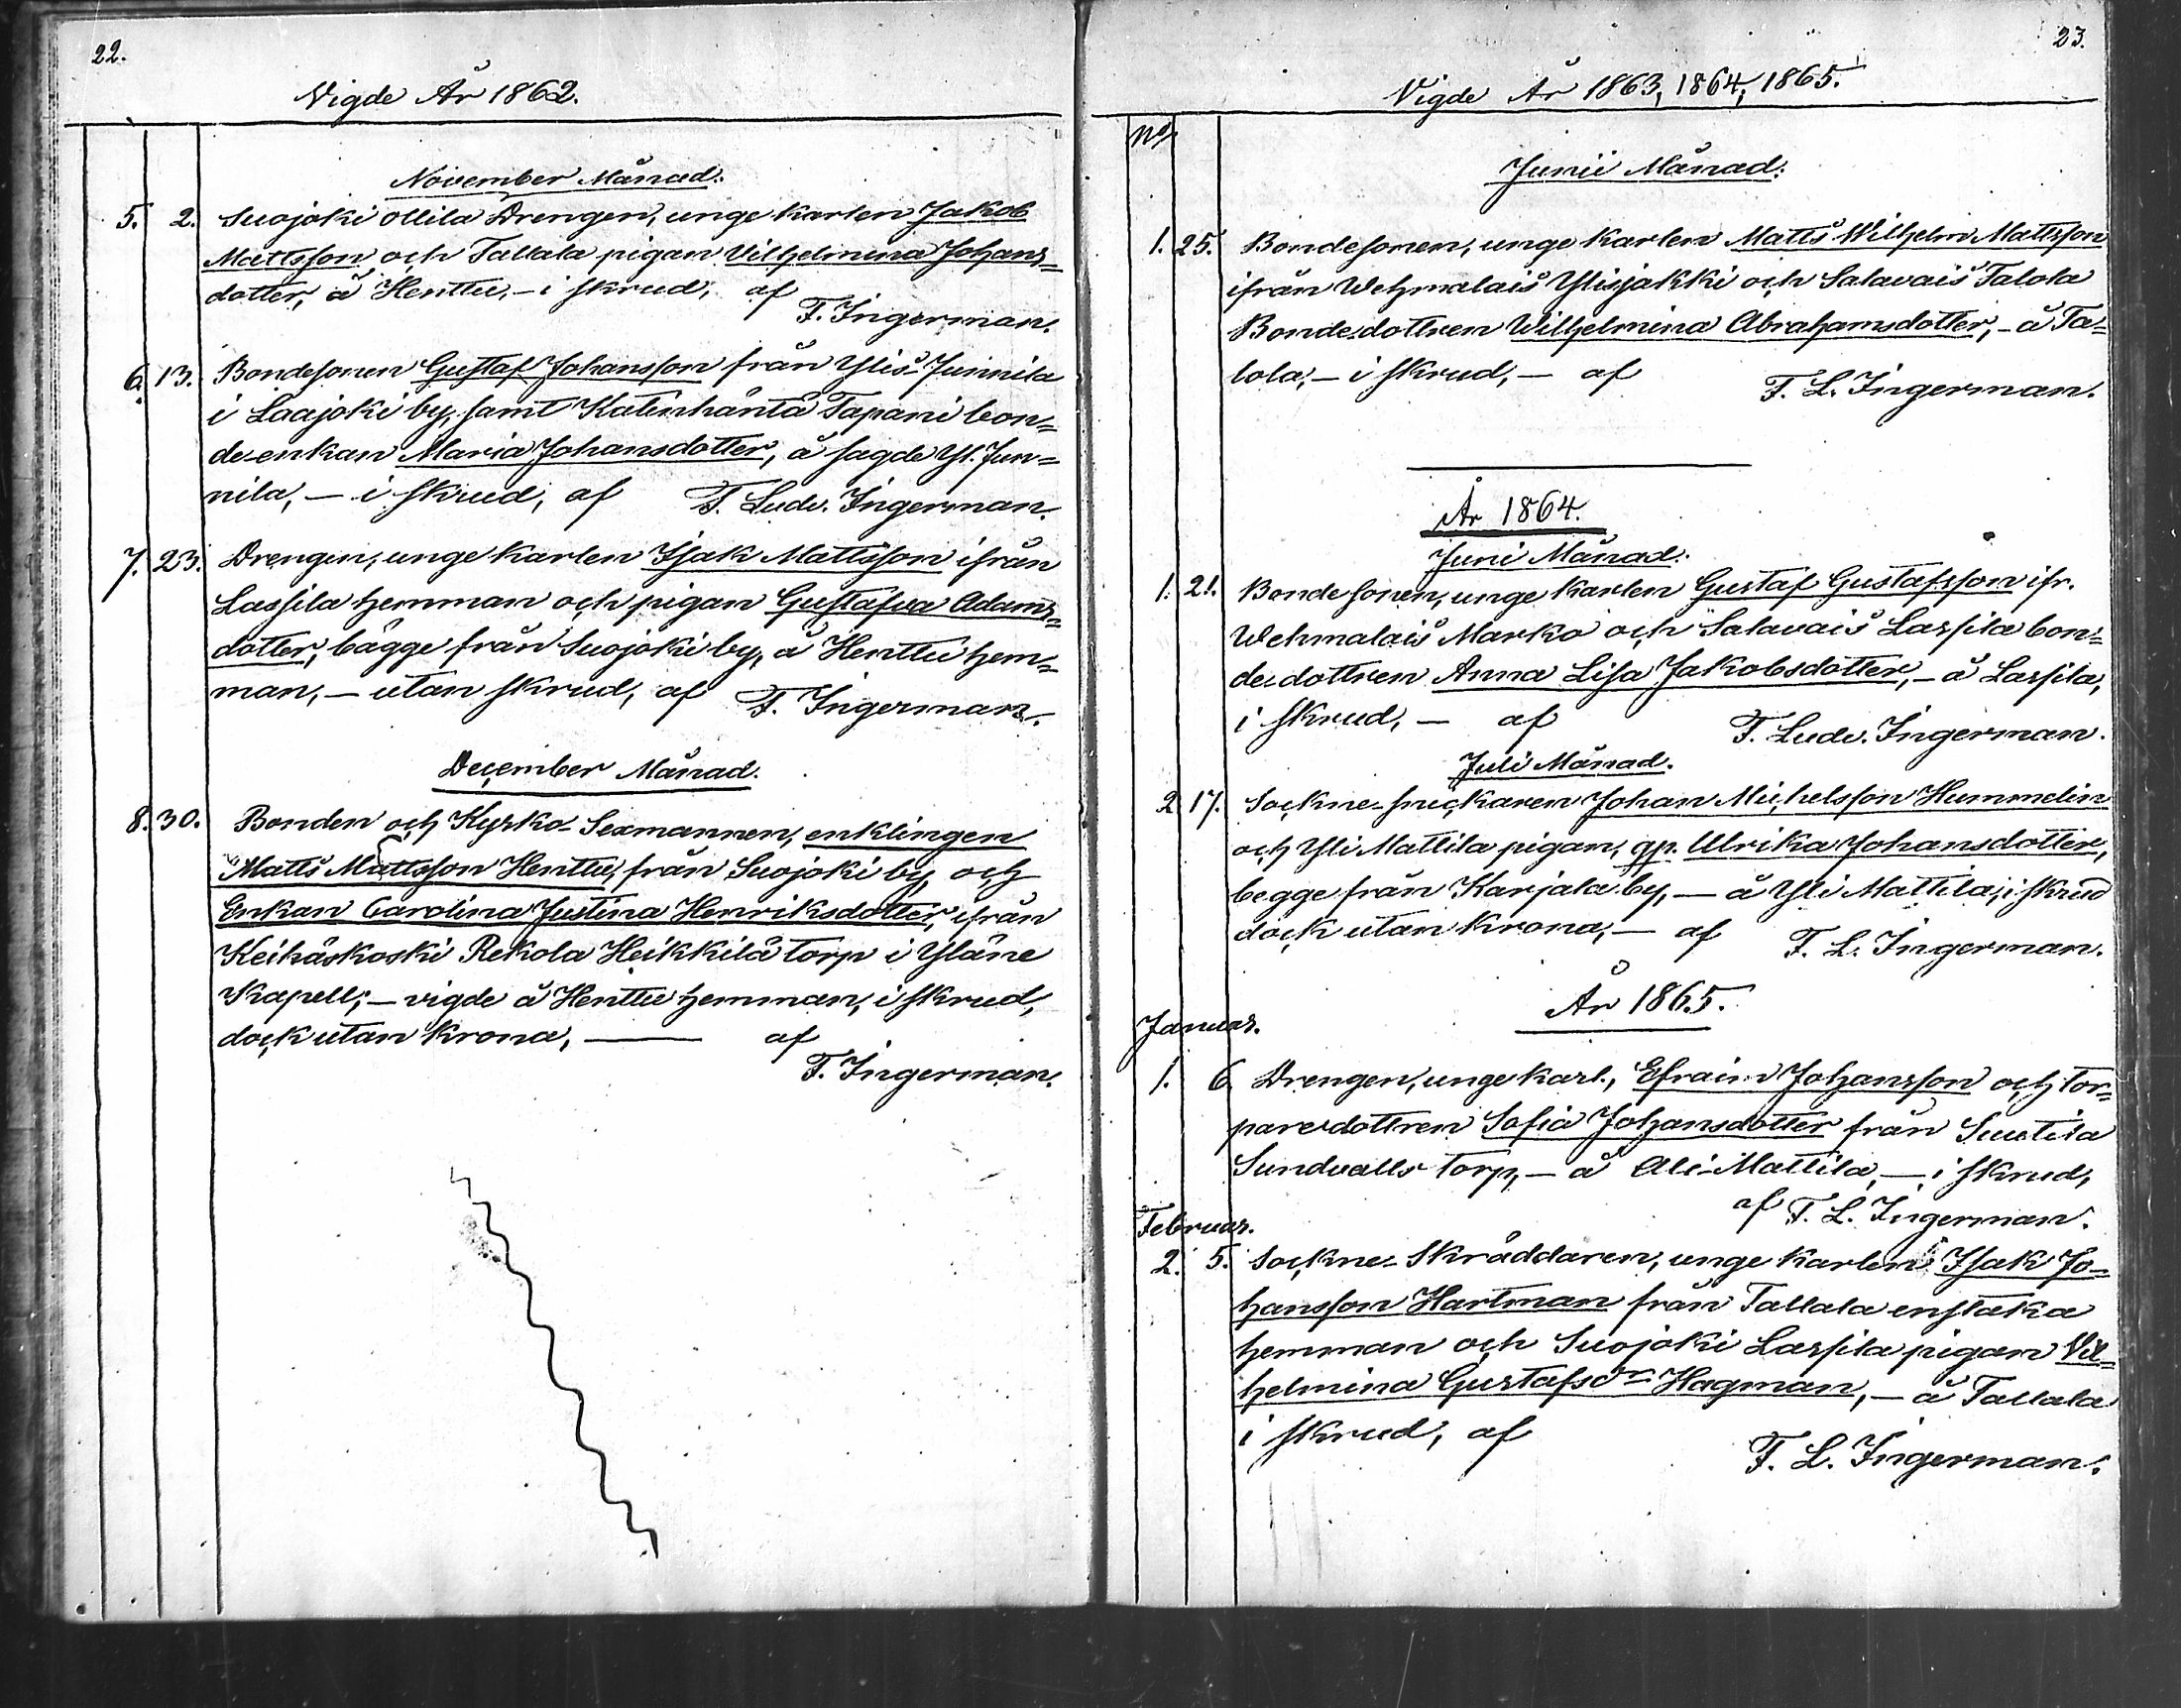 22.
Vigde År 1862.
November Månad.
5. 2. Suojoki Ollila Drengen, unge karlen Jakob
Mattsson och Tallala pigan Vilhelmina Johans=
dotter, å Henttu, – i skrud, af
F. Ingerman.
6. 13. Bondesonen Gustaf Johansson från Ylis-Junnila
i Laajoki by, samt Katinhäntä Tapani bon=
de-enkan Maria Johansdotter, å sagde Yl. Jun=
nila, – i skrud, af F. Ludv. Ingerman.
7. 23. Drengen, unge karlen Isak Mattsson ifrån
Lassila hemman och pigan Gustafva Adams=
dotter, bägge från Suojoki by, å Henttu hem=
man, – utan skrud, af F. Ingerman.
December Månad.
8. 30. Bonden och Kyrko-Sexmannen, enklingen
Matts Mattsson Henttu, från Suojoki by, och
Enkan Carolina Justina Henriksdotter, ifrån
Keihäskoski Rekola Heikkilä torp i Yläne
Kapell; – vigde å Henttu hemman, i skrud,
dock utan krona, — af
F. Ingerman.
23.
Vigde År 1863, 1864, 1865.
No
Junii Månad.
1. 25. Bondesonen, unge karlen Matts Wilhelm Mattsson
ifrån Wehmalais Ylisjakki och Salavais Talola
Bonde-dottren Wilhelmina Abrahamsdotter, – å Ta=
lola, – i skrud, – af F. L. Ingerman.
År 1864.
Juni Månad.
1. 21. Bondesonen, unge karlen Gustaf Gustafsson ifr.
Wehmalais Marko och Salavais Lassila bon=
de-dottren Anna Lisa Jakobsdotter, – å Lassila,
i skrud, – af F. Ludv. Ingerman.
Juli Månad.
2. 17. Sockne-snickaren Johan Michelsson Hummelin
och Yli Mattila pigan, qp. Ulrika Johansdotter,
begge från Karjala by, – å Yli Mattila, i skrud
dock utan krona, – af F. L. Ingerman.
År 1865.
Januar.
1. 6. Drengen, unge karl., Efraim Johansson och tor=
paredottren Sofia Johansdotter från Suutila
Sundvalls torp, – å Ali-Mattila, – i skrud,
af F. L. Ingerman.
Februar.
2. 5. Sockne-Skräddaren, unge karlen Isak Jo=
hansson Hartman från Tallala enstaka
hemman och Suojoki Lassila pigan Vil=
helmina Gustafsdr Hagman, – å Tallala
i skrud, af
F. L. Ingerman.